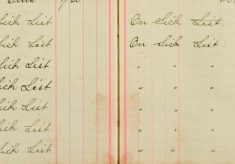 Sick List On Sick List
Sick List On Sick List
Sick List " " "
Sick List " " "
Sick List " " "
Sick List " " "
Sick List " " "